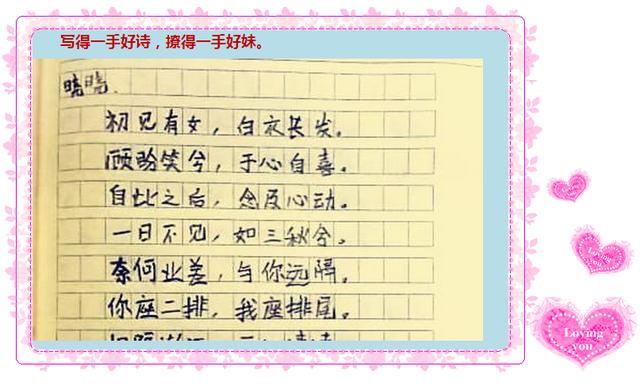 写得一手好诗，撩得一手好妹。
晓晓.
初见有女，白衣长发。
顾盼笑兮，于心自喜。
自此之后，念及心动。
一日不见，如三秋兮。
奈何业差，与你远隔。
你座二排，我座排尾。
Loving you
Loving you